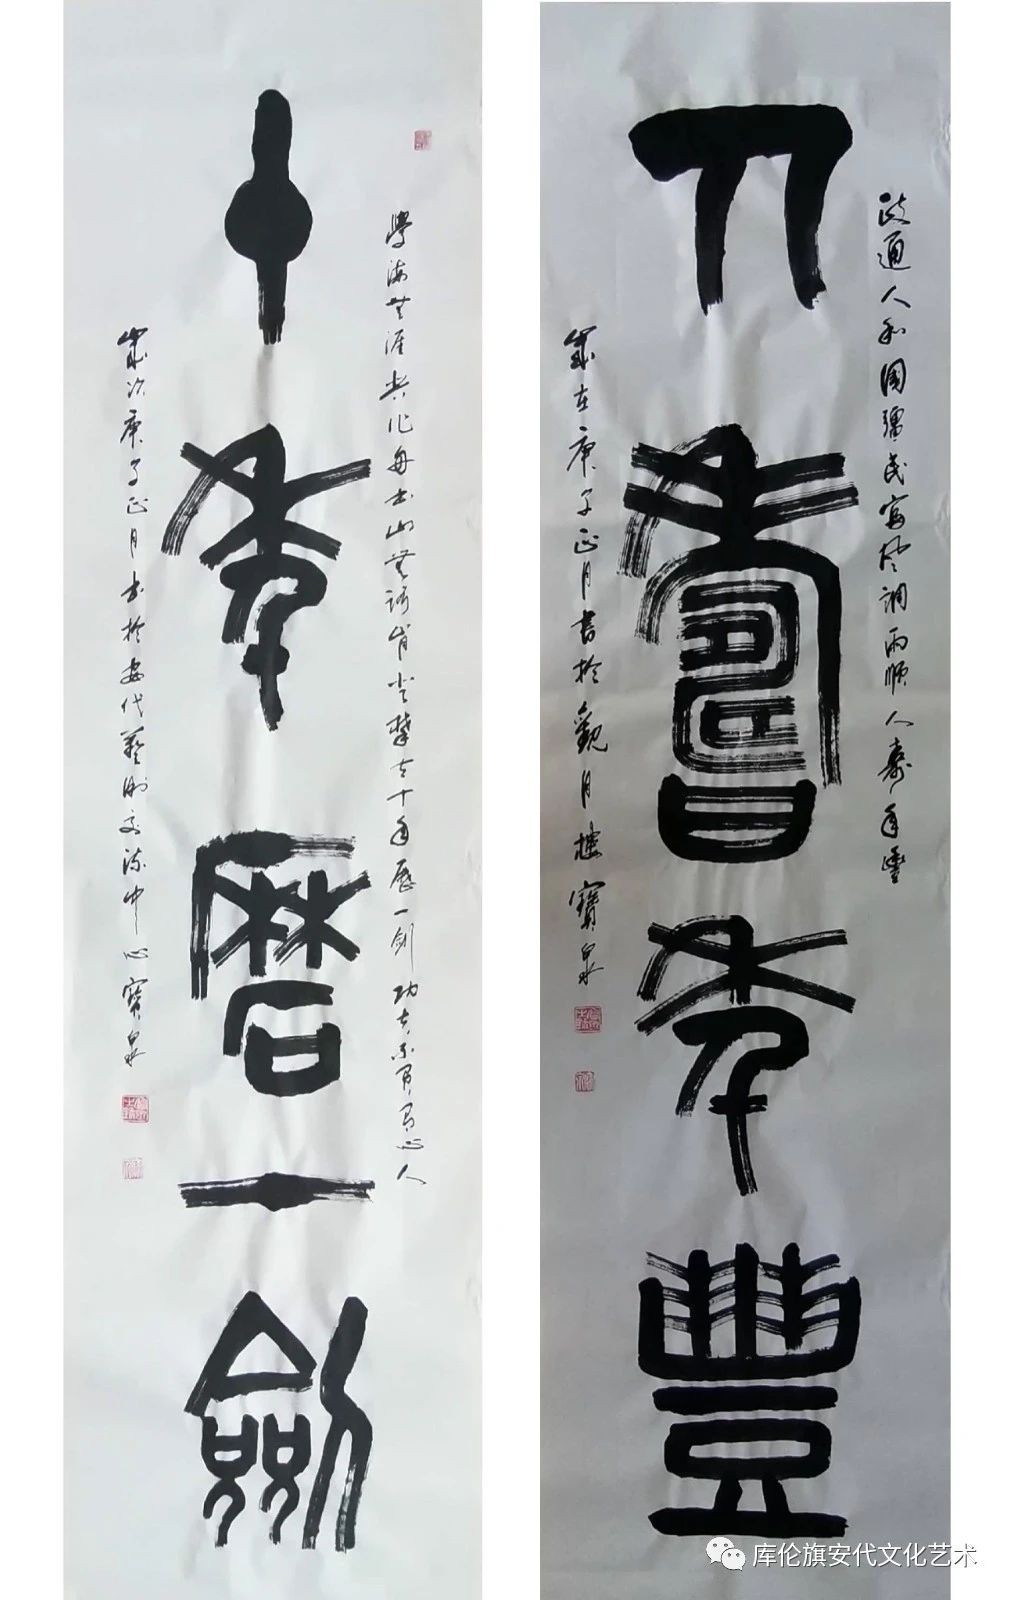 政通人和國彊民富風調雨順人壽年豐
人壽年豐
歲在庚子正月書於觀月樓 寶泉
學海無涯苦作舟書山無路肯登攀十年歷一劍 功夫不負有心人
十年磨一劍
歲次庚子正月書於安代藝術交流中心寶泉
库伦旗安代文化艺术